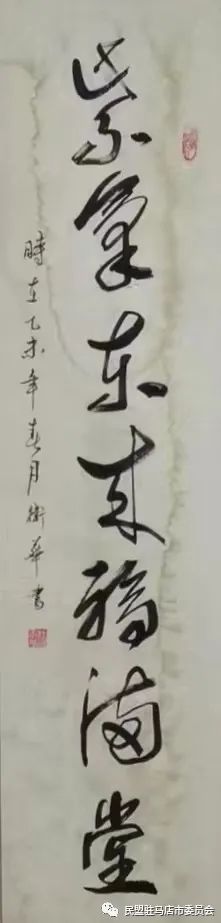 紫氣东来福满堂
時在乙未年春月衛華書
民盟驻马店市委员会